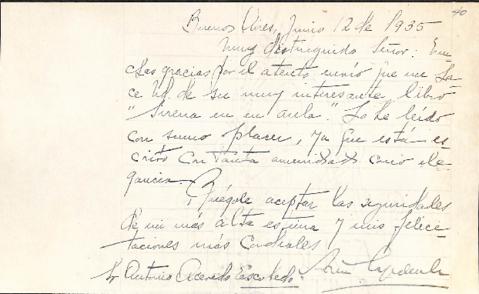 40
Buenos Aires, Junio 12 de 1935
Muy distinguido Señor: Mu-
chas gracias por el atento envío que me ha-
ce Ud de su muy interesante libro
"Sirena en un aula". Lo he leído
con sumo placer, ya que está es-
crito con tanta amenidad como ele-
gancia.
Ruégole aceptar las seguridades
de mi más alta estima y mis felici-
taciones más cordiales
Sr Antonio Acevedo Escobedo.